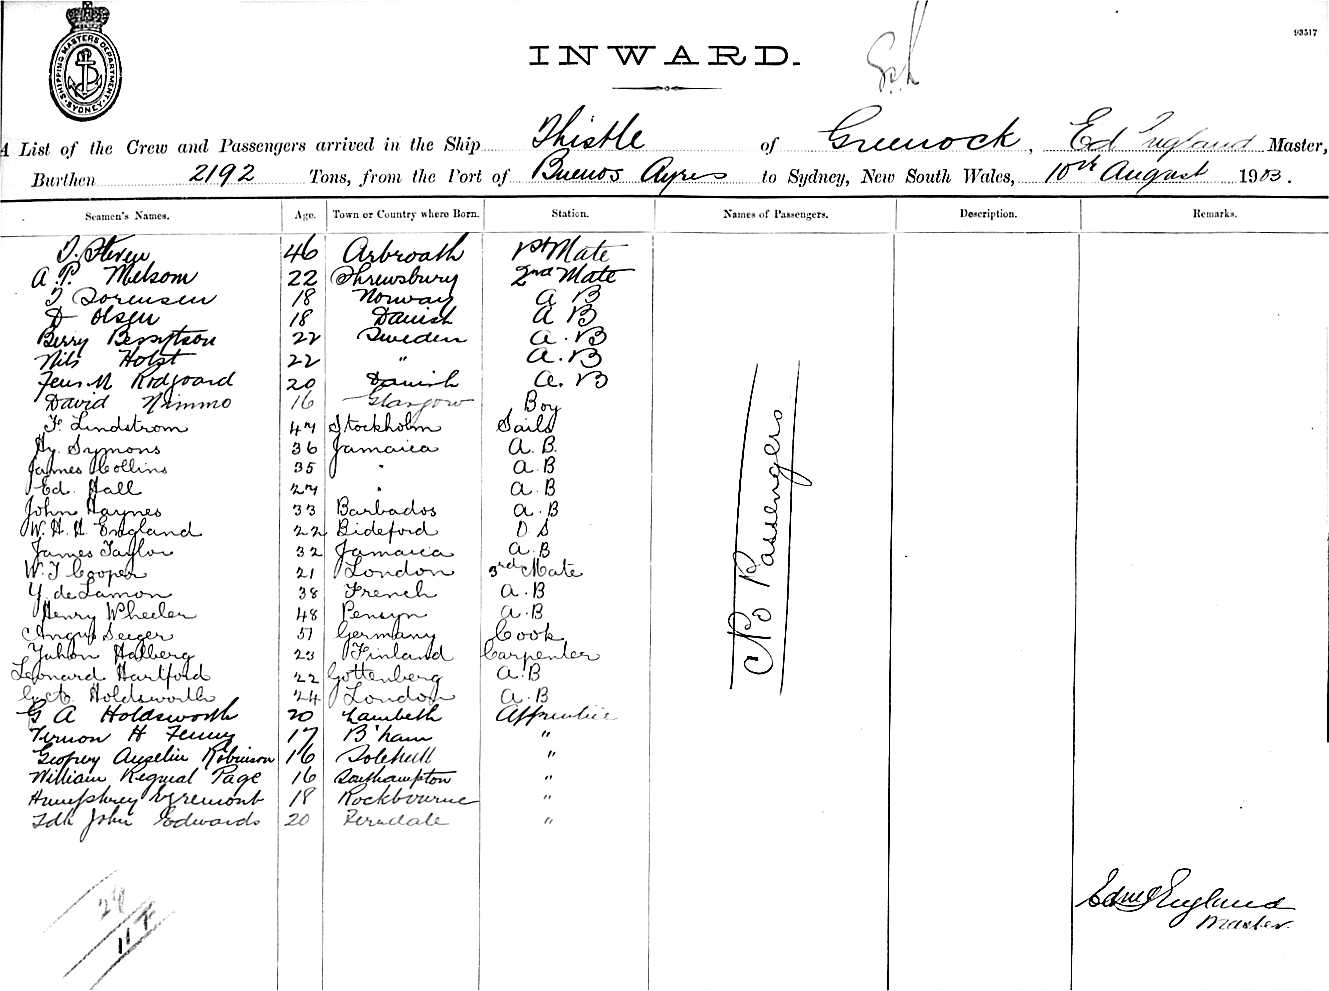 93517
SHIPPING MASTERS DEPARTMENT SYDNEY
INWARD.
A List of the Crew and Passengers arrived in the Ship Thistle of Greenock, Ed England Master,
Burthen 2192 Tons, from the Port of Buenos Ayres to Sydney, New South Wales, 10th August 1903.
Seamen's Names. Age. Town or Country where Born. Station. Names of Passengers. Description. Remarks.
Steven 46 Arbroath 1st Mate
A P. Melsom 22 Shrewsbury 2nd Mate
Sorensen 18 Norway A B
D Olsen 18 Danish A B
Berry 22 Sweden A. B
Nils Holst 22 " A. B
Jens M Rodgaard 20 Danish A. B
David Nimmo 16 Glasgow Boy
F. Lindstrom 47 Stockholm Sails
Hy. Symons 36 Jamaica A. B.
James Collins 35 " A. B
Ed. Hall 27 " A. B
John Haynes 33 Barbados A. B
W. H. H. England 22 Bideford O S
James Taylor 32 Jamaica A. B
W. J Cooper 21 London 3rd Mate
Y. de Lamon 38 French A. B
Henry Wheeler 48 Penryn A. B
Angus Seeger 51 Germany Cook
Halberg 23 Finland Carpenter
Leonard Hartford 22 Gottenberg A. B
Holdsworth 24 London A. B
G A Holdsworth 20 Lambeth Apprentice
Vernon H Fenny 17 B'ham "
Robinson 16 Solehull "
William Page 16 Southampton "
Humphrey Egremont 18 Rockbourne "
John Edwards 20 Ferndale "
No Passengers
England
Master.